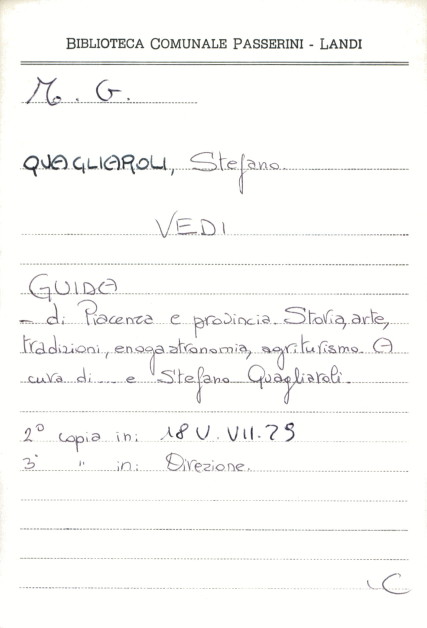 BIBLIOTECA COMUNALE PASSERINI - LANDI
M. G.
QUAGLIAROLI, Stefano.
VEDI
GUIDA
- di Piacenza e provincia. Storia, arte,
tradizioni, enogastronomia, agriturismo. A
cura di... e Stefano Quagliaroli.
2° copia in: 18 V. VII. 29
3° " in: Direzione.